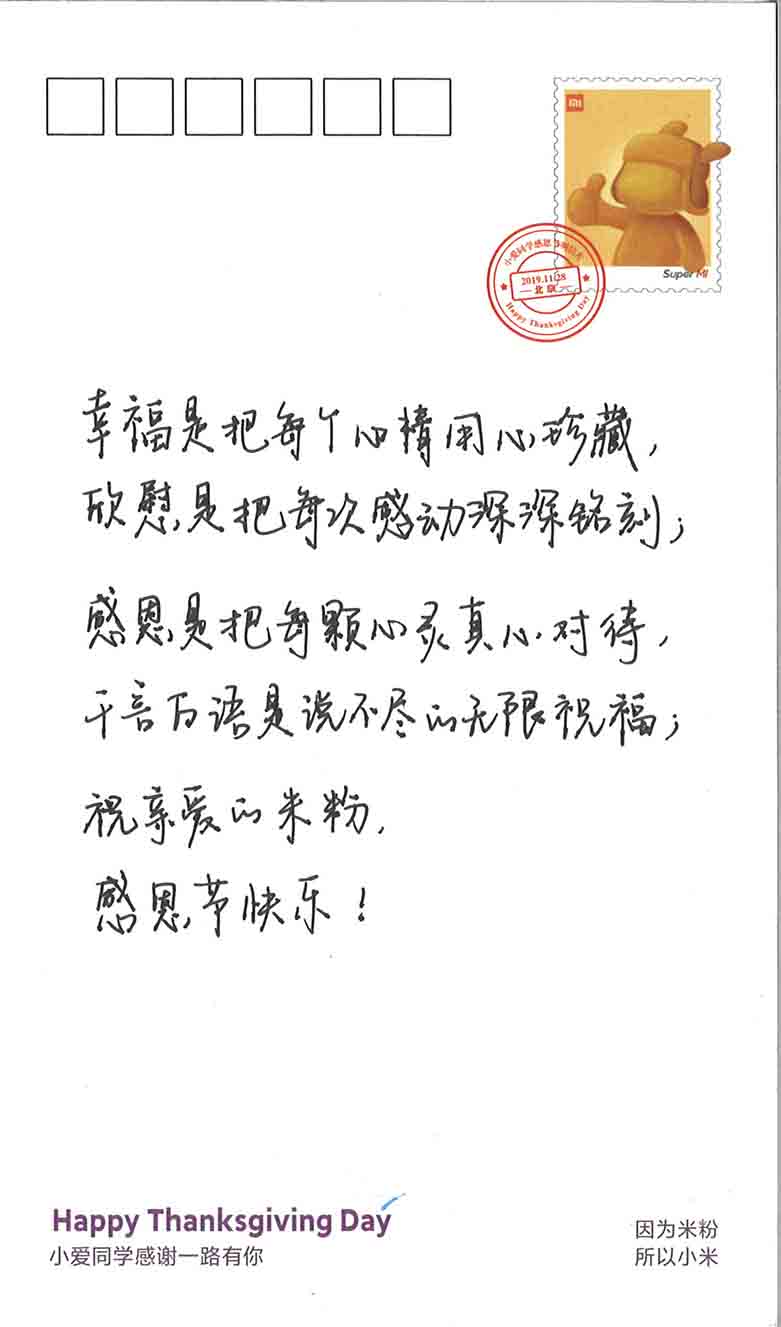 MI
Super MI
小爱同学感恩节明信片
2019.11.28
北京
Happy Thanksgiving Day
幸福是把每个心情用心珍藏，
欣慰是把每次感动深深铭刻；
感恩是把每颗心灵真心对待，
千言万语是说不尽的无限祝福；
祝亲爱的米粉，
感恩节快乐！
Happy Thanksgiving Day
小爱同学感谢一路有你
因为米粉
所以小米